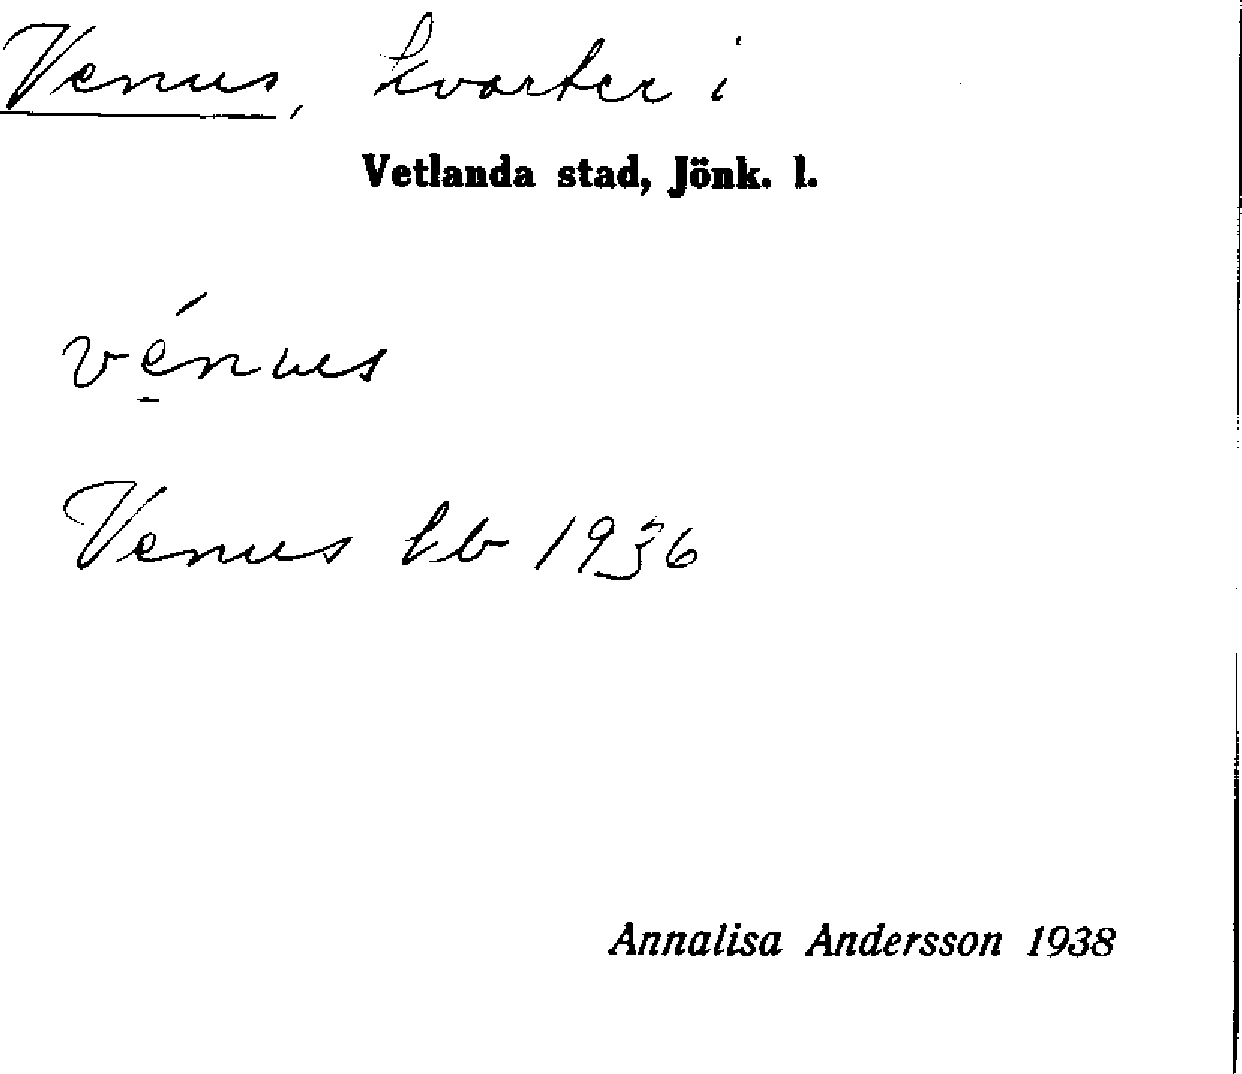 Venus, kvarter i
Vetlanda stad, Jönk. l.
vé̱nus
Venus lb 1936
Annalisa Andersson 1938